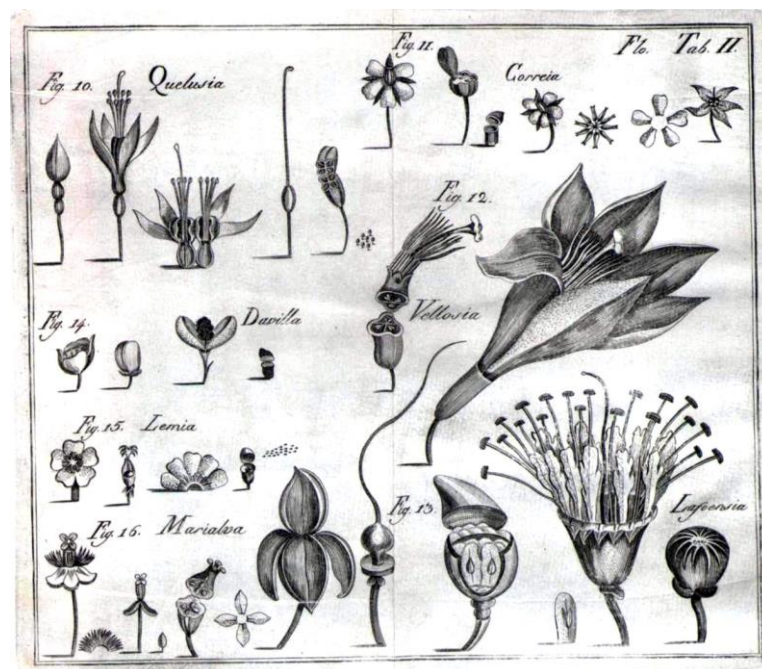 Flo. Tab. II.
Fig. 10. Quelusia
Fig. 11. Correia
Fig. 12. Vellosia
Fig. 14. Davilla
Fig. 15. Lemia
Fig. 13. Lafoensia
Fig. 16. Marialva